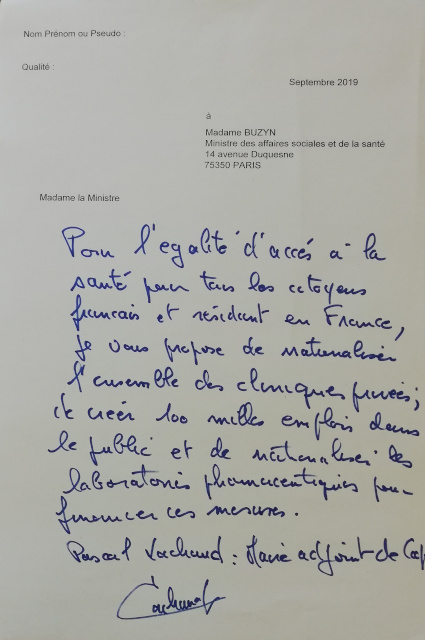 Nom Prénom ou Pseudo :
Qualité :
Septembre 2019
à
Madame BUZYN
Ministre des affaires sociales et de la santé
14 avenue Duquesne
75350 PARIS
Madame la Ministre
Pour l'egalité d'accés à la
santé pour tous les citoyens
francais et résidant en France,
je vous propose de nationaliser
l'ensemble des cliniques privées ;
de créer 100 milles emplois dans
le public et de nationaliser les
laboratoires pharmaceutiques pour
financer ces mesures.
Pascal : Maire adjoint de